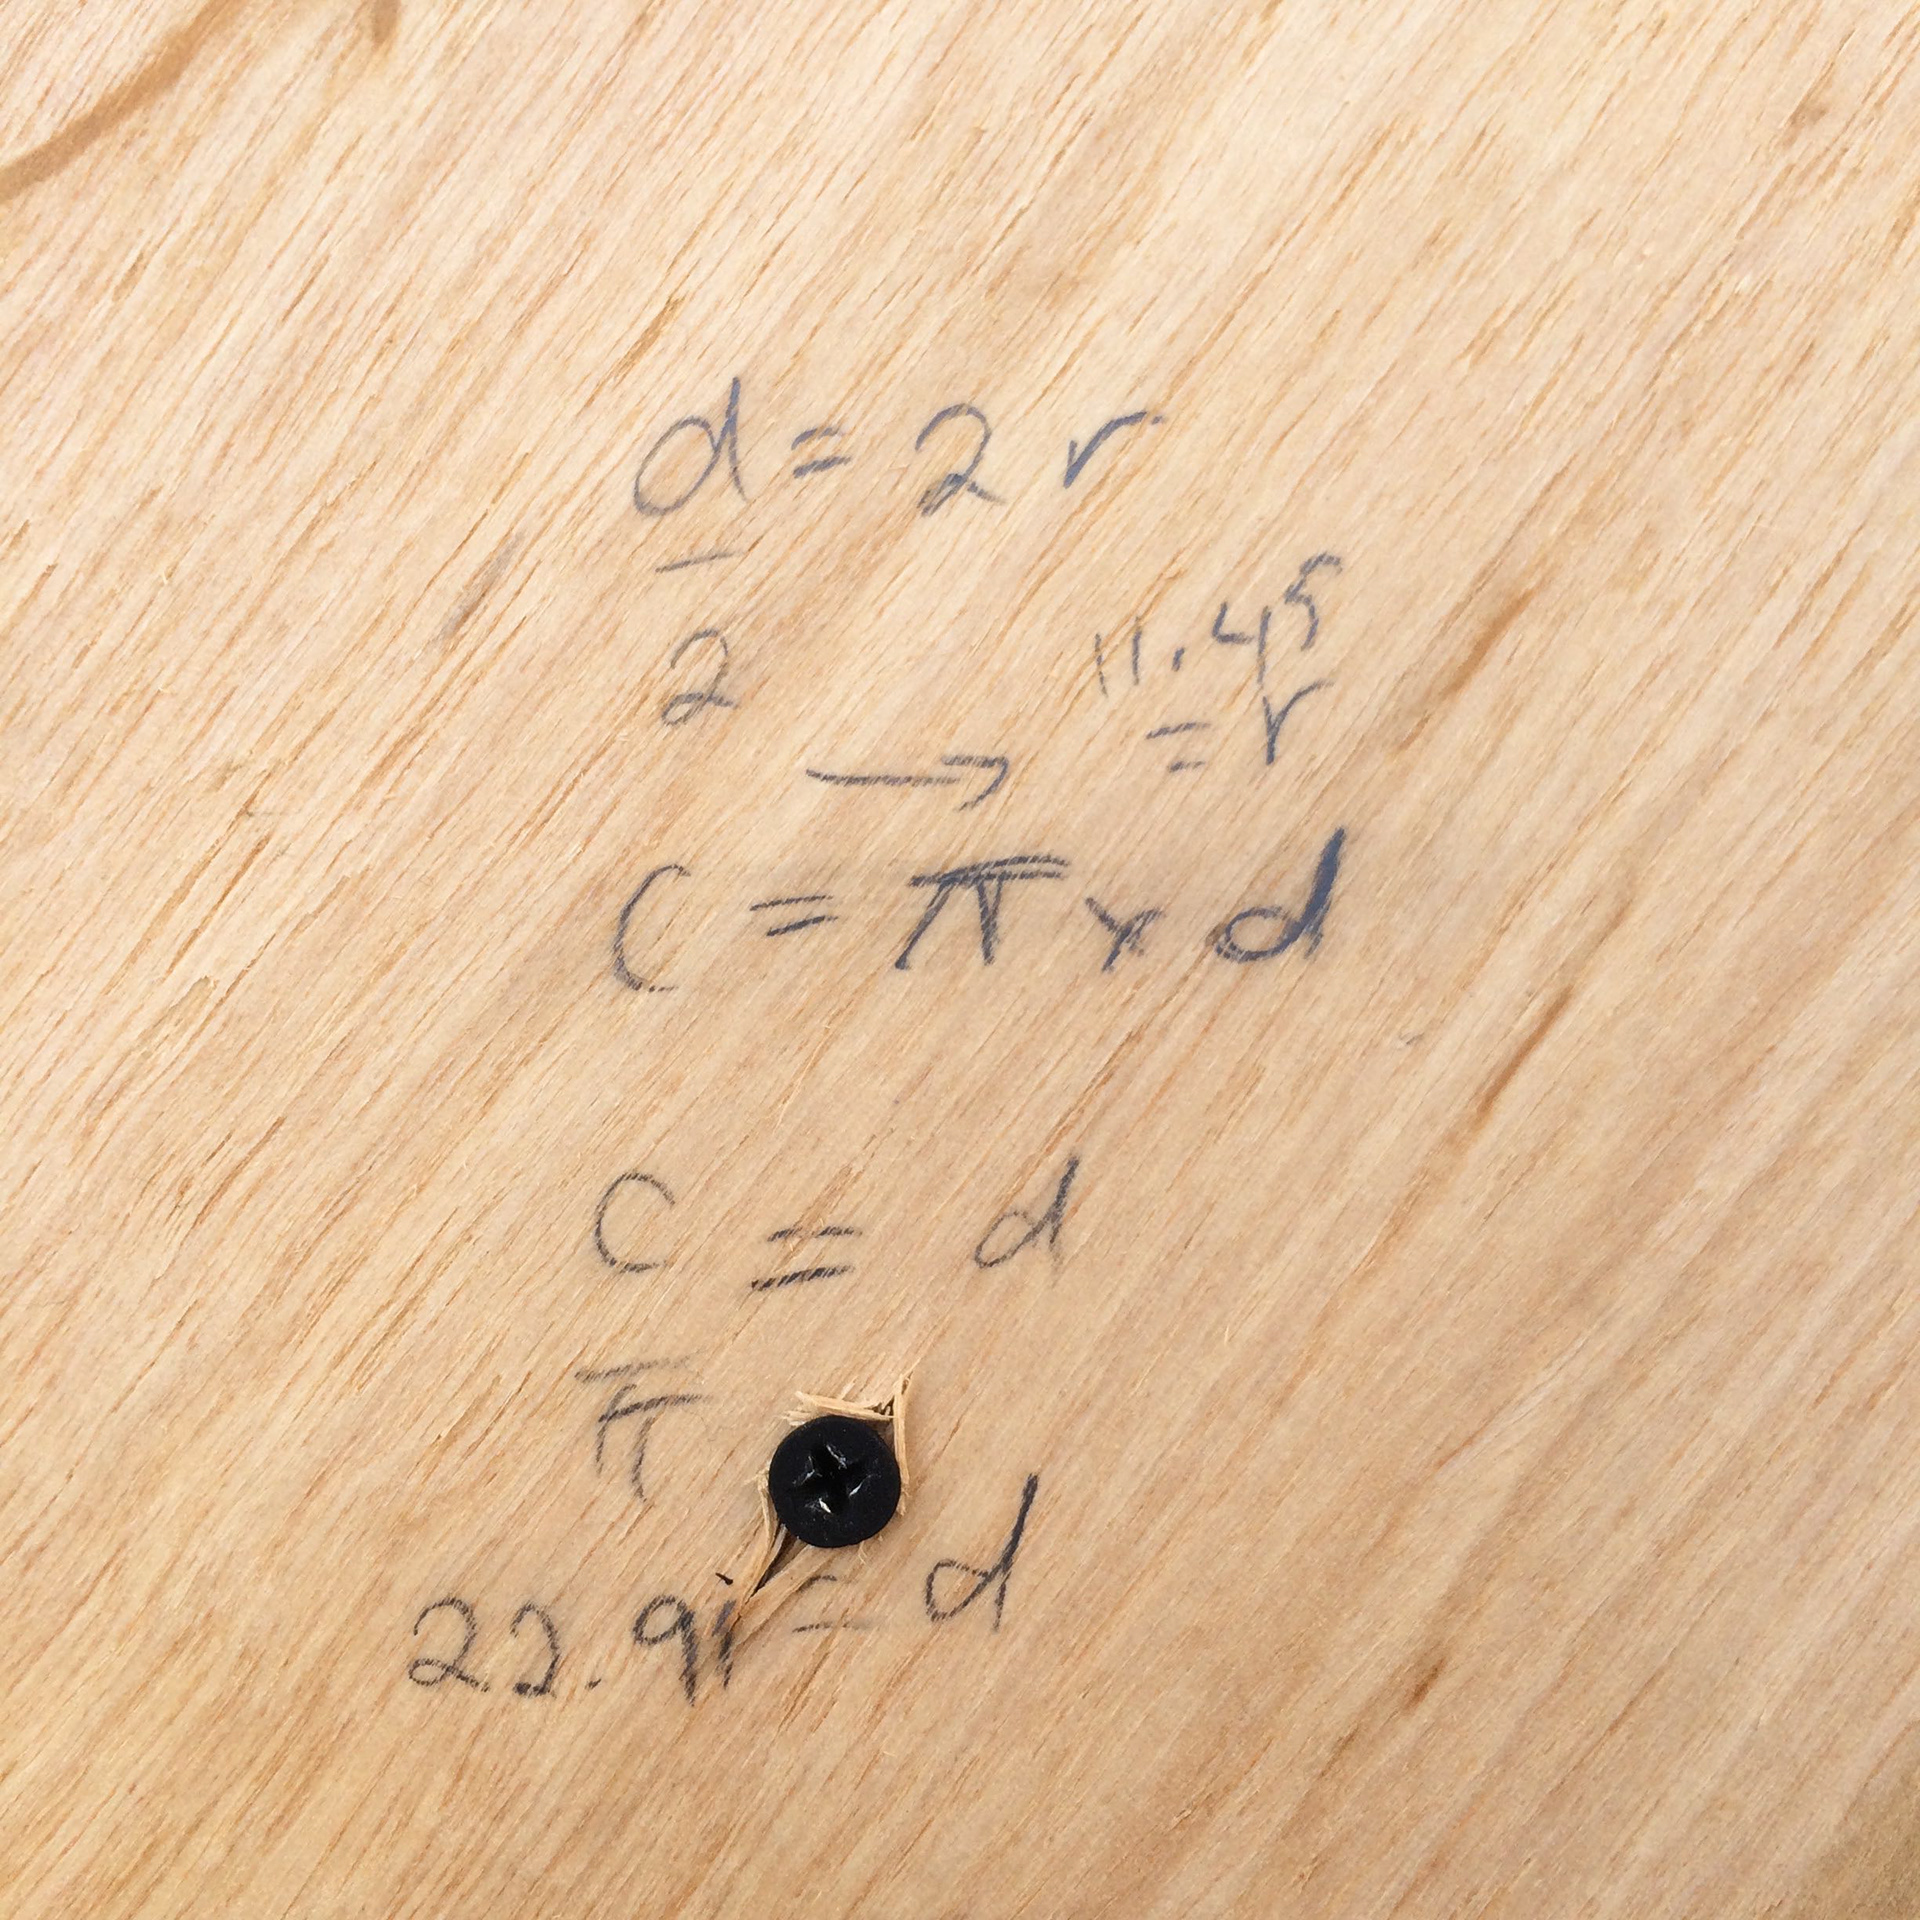 d = 2 r
2
11.45
→ = r
C = π x d
C = d
π
22.91 = d